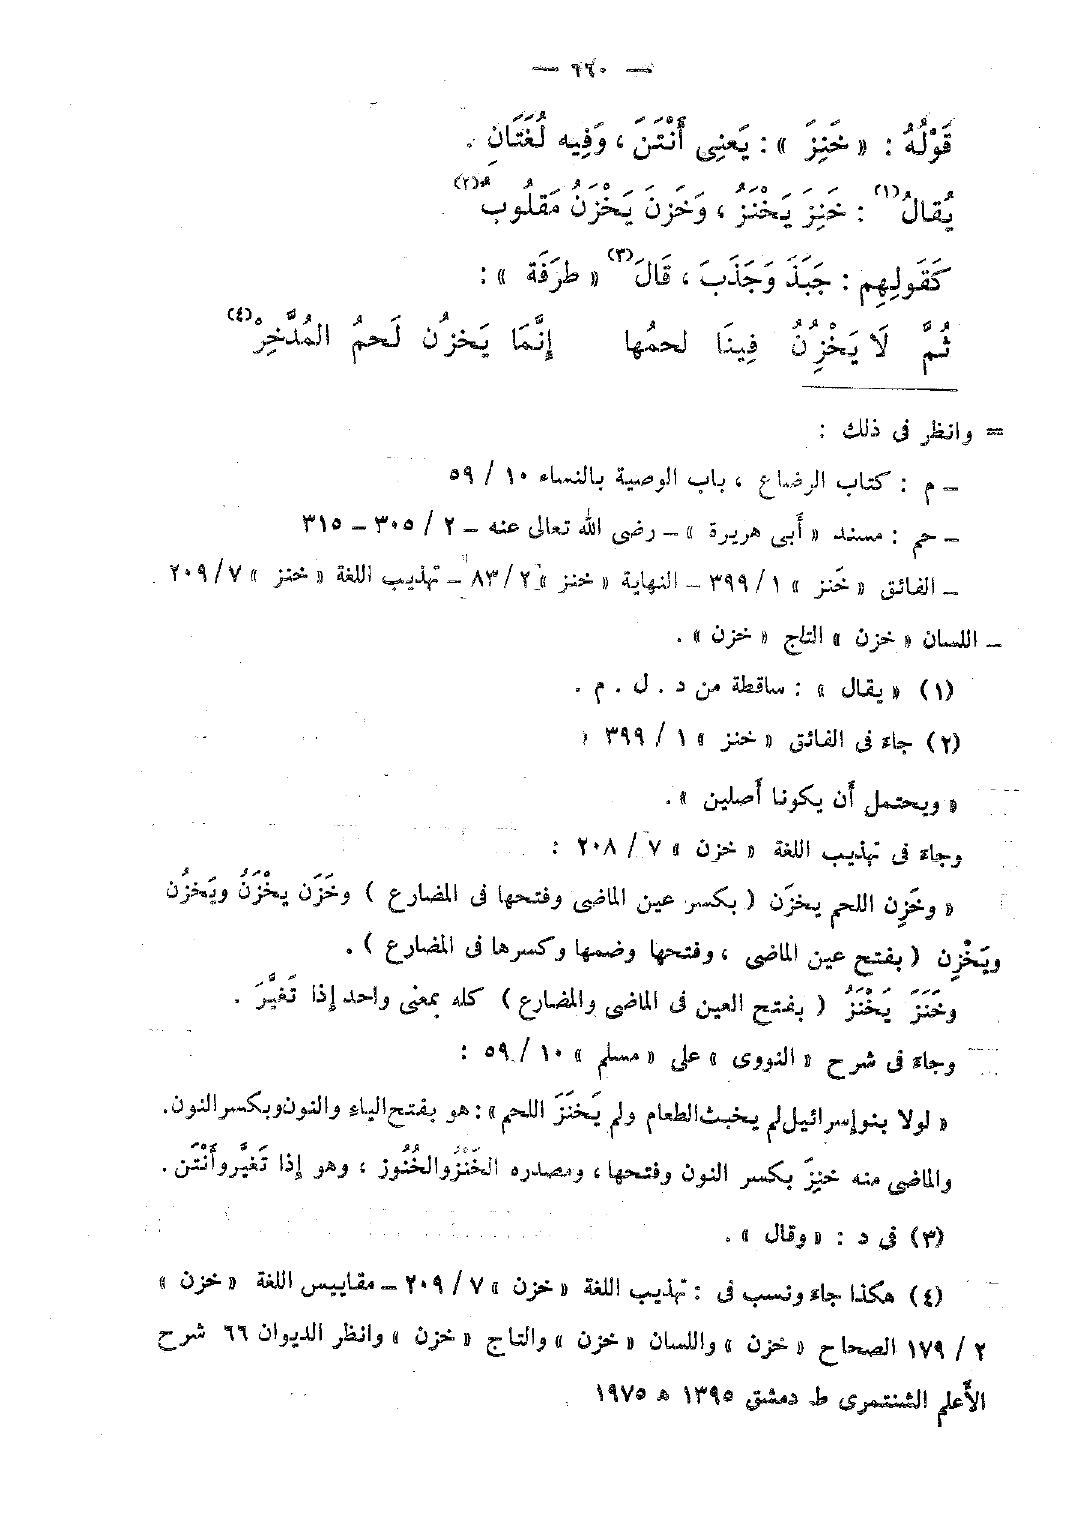 — ٦٦٠ —
قَوْلُهُ : « خَنِزَ » : يَعنِى أَنْتَنَ ، وَفِيه لُغَتَانِ .
يُقالُ(١) : خَنِزَ يَخْنَزُ ، وَخَزِنَ يَخْزَنُ مَقلُوبٌ(٢)
كَقَولِهِم : جَبَذَ وَجَذَبَ ، قَالَ(٣) « طرَفَة » :
ثُمَّ لَا يَخْزُنُ فِينَا لحمُها إِنَّمَا يَخزُن لَحمُ المُدَّخِرْ(٤)
= وانظر فى ذلك :
ــ م : كتاب الرضاع ، باب الوصية بالنساء ١٠ / ٥٩
ــ حم : مسند « أَبى هريرة » ــ رضى الله تعالى عنه ــ ٢ / ٣٠٥ ــ ٣١٥
ــ الفائق « خَنز » ١ / ٣٩٩ ــ النهاية « خنز » ٢ / ٨٣ ــ تهذيب اللغة « خنز » ٧ / ٢٠٩
ــ اللسان « خزن » التاج « خزن » .
(١) « يقال » : ساقطة من د . ل . م .
(٢) جاءَ فى الفائق « خنز » ١ / ٣٩٩ :
« ويحتمل أَن يكونا أَصلين » .
وجاءَ فى تهذيب اللغة « خزن » ٧ / ٢٠٨ :
« وخَزِن اللحم يخزَن ( بكسر عين الماضى وفتحها فى المضارع ) وخَزَن يخْزَنُ ويَخزُن
ويَخْزِن ( بفتح عين الماضى ، وفتحها وضمها وكسرها فى المضارع ) .
وخَنَزَ يَخْنَزُ ( بفتح العين فى الماضى والمضارع ) كله بمعنى واحد إذا تَغَيَّرَ .
وجاءَ فى شرح « النووى » على « مسلم » ١٠ / ٥٩ :
« لولا بنو إسرائيل لم يخبث الطعام ولم يَخنَزَ اللحم » : هو بفتح الياءِ والنون وبكسر النون .
والماضى منه خنِزَ بكسر النون وفتحها ، ومصدره الخَنَزُ والخُنُوز ، وهو إذا تَغَيَّر وأَنْتَن .
(٣) فى د : « وقال » .
(٤) هكذا جاءَ ونسب فى : تهذيب اللغة « خزن » ٧ / ٢٠٩ ــ مقاييس اللغة « خزن »
٢ / ١٧٩ الصحاح « خزن » واللسان « خزن » والتاج « خزن » وانظر الديوان ٦٦ شرح
الأَعلم الشنتمرى ط دمشق ١٣٩٥ ه ١٩٧٥